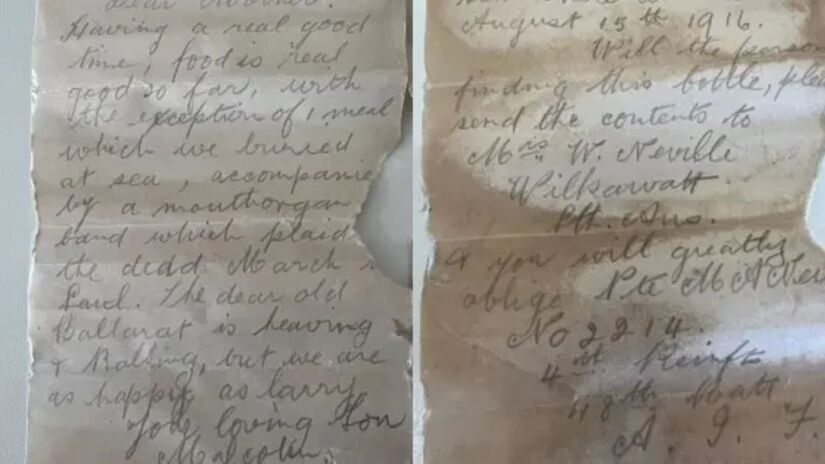 Dear Mother.
Having a real good
time, food is real
good so far, with
the exception of 1 meal
which we burried
at sea, accompanie
by a mouthorgan
band which plaid
the dedd March
Saul. The dear old
Ballarat is heaving
& Rolling, but we are
as happy as larry
Your loving Son
Malcolm.
August 15th 1916.
Will the person
finding this bottle, plea
send the contents to
Mrs W. Neville
Wilkawatt.
Sth. Aus.
& you will greatly
oblige Pte M A Nev
No 2214.
4th Reinfts
48th Batt
A. I. F.